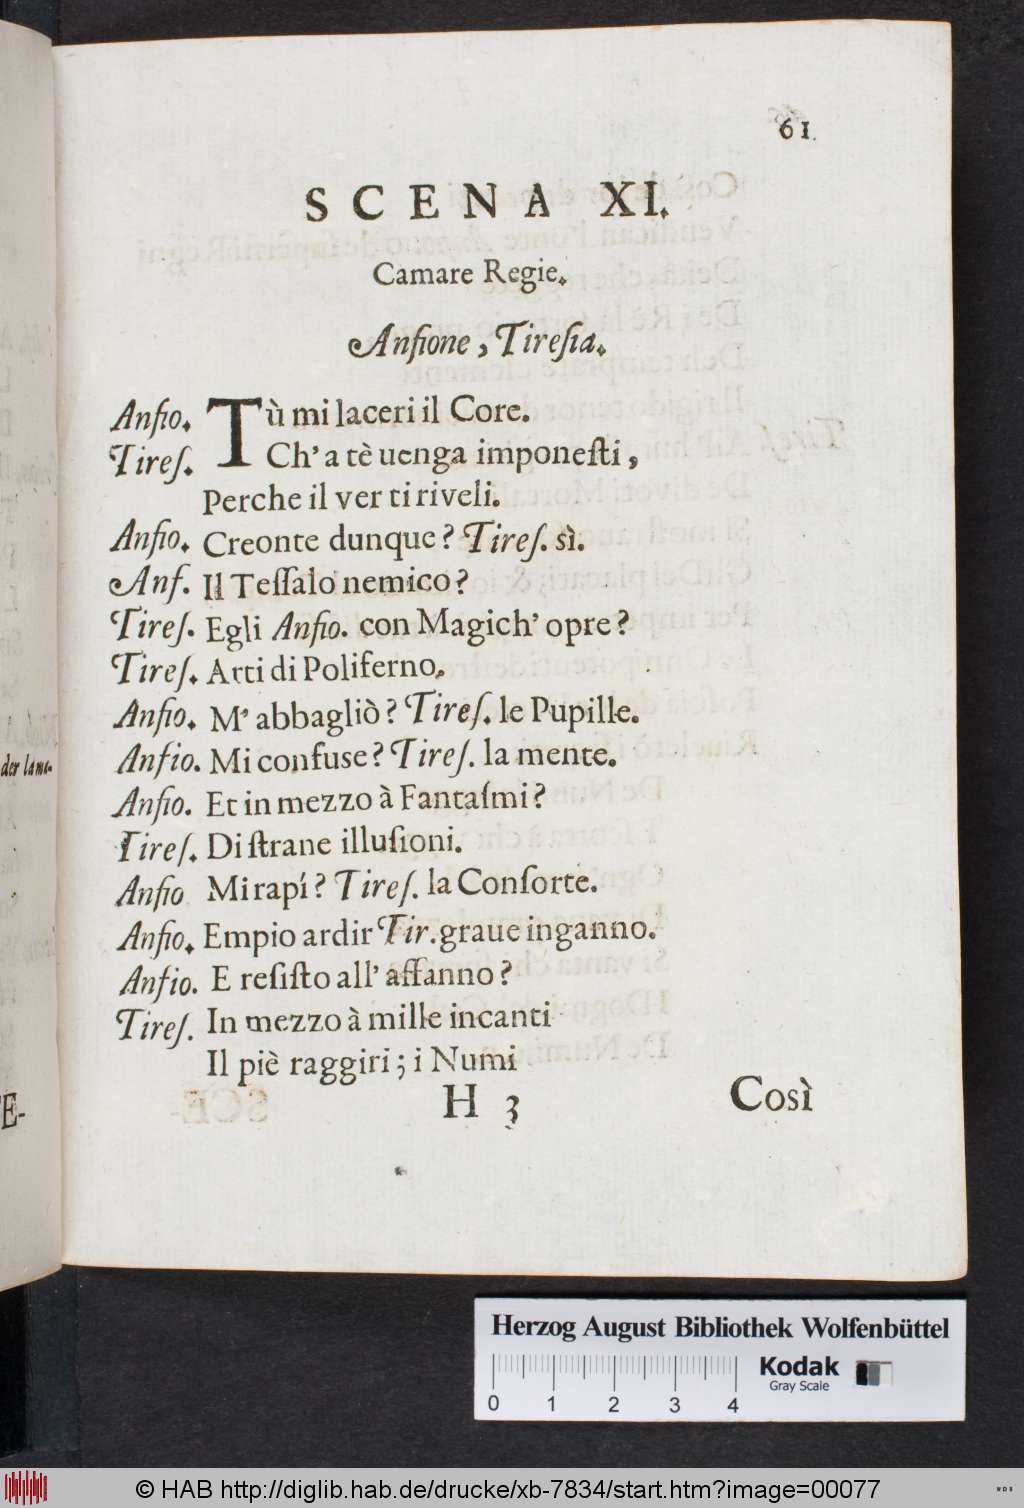 61.
SCENA XI.
Camare Regie.
Anſione, Tireſia.
Anſio. Tù mi laceri il Core.
Tireſ. Ch' a tè uenga imponeſti,
Perche il ver ti riveli.
Anſio. Creonte dunque? Tireſ. sì.
Anſ. Il Teſſalo nemico?
Tireſ. Egli Anſio. con Magich' opre?
Tireſ. Arti di Poliferno.
Anſio. M' abbagliò? Tireſ. le Pupille.
Anſio. Mi confuse? Tireſ. la mente.
Anſio. Et in mezzo à Fantaſmi?
Tireſ. Di ſtrane illuſioni.
Anſio Mi rapí? Tireſ. la Conſorte.
Anſio. Empio ardir Tir. graue inganno.
Anſio. E reſiſto all' affanno?
Tireſ. In mezzo à mille incanti
Il piè raggiri; i Numi
H 3 Così
der lame-
E-
Herzog August Bibliothek Wolfenbüttel
Kodak
Gray Scale
0 1 2 3 4
© HAB http://diglib.hab.de/drucke/xb-7834/start.htm?image=00077